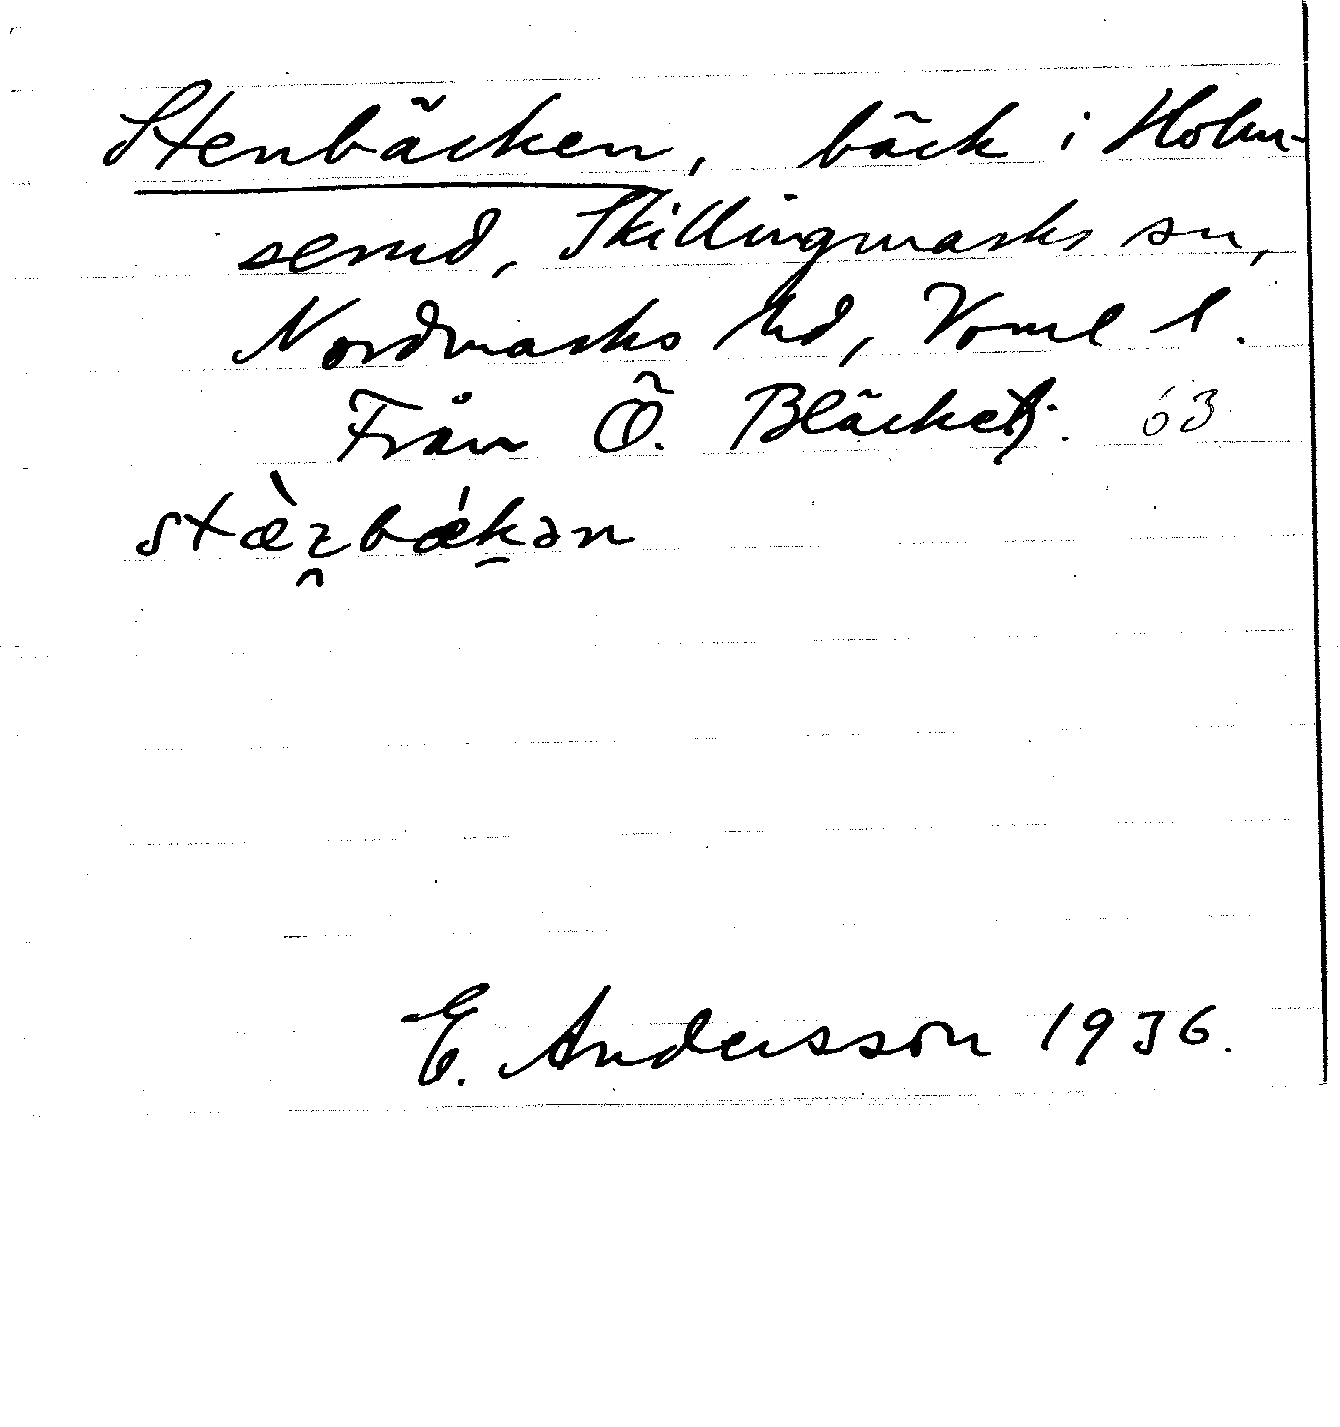 Stenbäcken, bäck i Holm-
serud, Skillingmarks sn,
Nordmarks hd, Vrml l.
Från Ö. Bläcketj. 63
stæ̀rbækən
E. Andersson 1936.